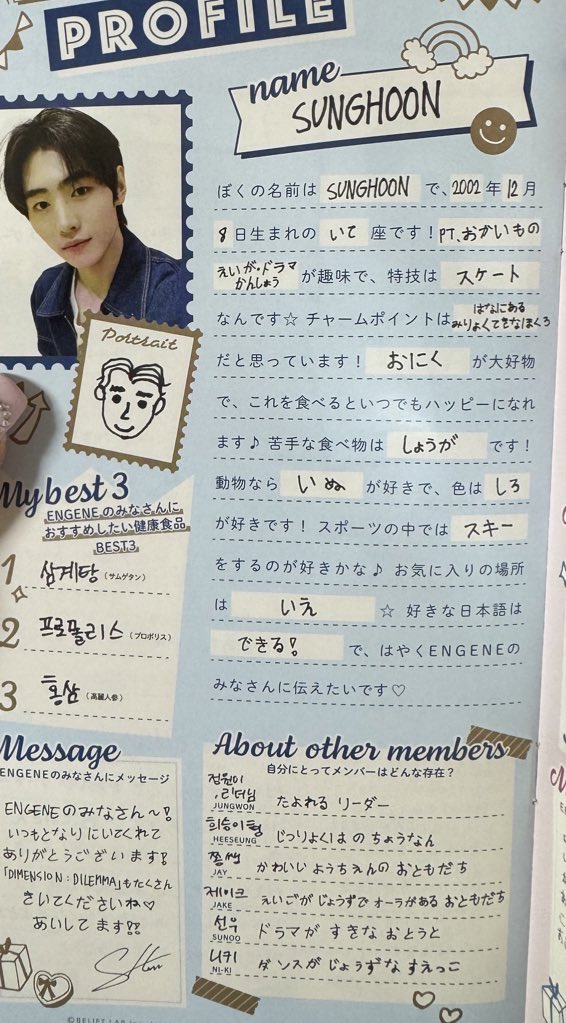 PROFILE
name
SUNGHOON
ぼくの名前は SUNGHOON で、2002年12月
8日生まれの いて 座です！ PT、おかいもの
えいが・ドラマ
かんしょう が趣味で、特技は スケート
なんです☆ チャームポイントは はなにある
みりょくてきなほくろ
だと思っています！ おにく が大好物
で、これを食べるといつでもハッピーになれ
ます♪ 苦手な食べ物は しょうが です！
動物なら いぬ が好きで、色は しろ
が好きです！ スポーツの中では スキー
をするのが好きかな♪ お気に入りの場所
は いえ ☆ 好きな日本語は
できる！ で、はやくENGENEの
みなさんに伝えたいです♡
Portrait
My best 3
ENGENEのみなさんに
おすすめしたい健康食品
BEST3
1 삼계탕 (サムゲタン)
2 프로폴리스 (プロポリス)
3 홍삼 (高麗人参)
Message
ENGENEのみなさんにメッセージ
ENGENEのみなさん〜！
いつもとなりにいてくれて
ありがとうございます！
「DIMENSION：DILEMMA」もたくさん
きいてくださいね♡
あいしてます！！
About other members
自分にとってメンバーはどんな存在？
정원이
리더님
JUNGWON たよれる リーダー
희승이형
HEESEUNG じつりょくはの ちょうなん
쫑쌩
JAY かわいい ようちえんの おともだち
제이크
JAKE えいごが じょうずで オーラがある おともだち
선우
SUNOO ドラマが すきな おとうと
니키
NI-KI ダンスが じょうずな すえっこ